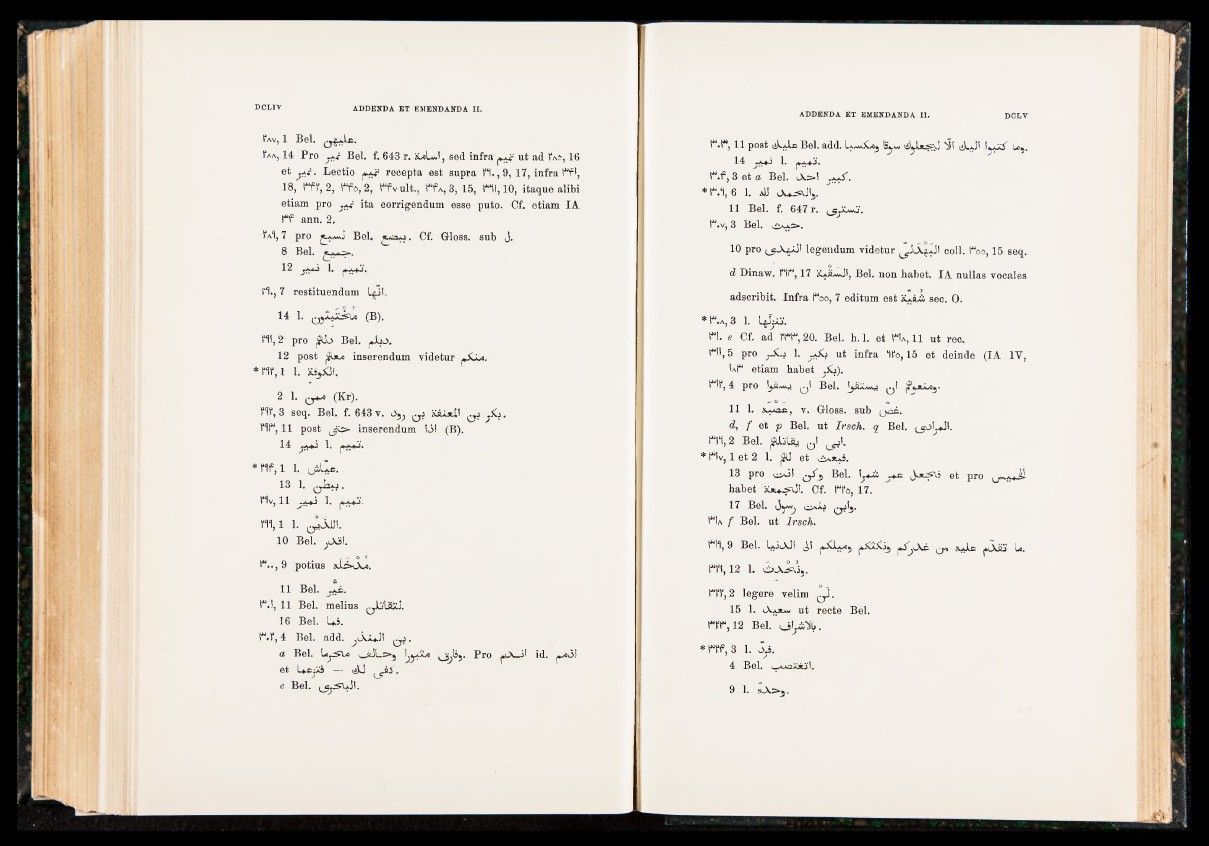 DCLIV ADDENDA ET EMENDANDA II.
٢٨٧, 1 Bel. عليهن.
٢٨٨, 14 Pro نمير Bel. f. 643 r. اسامة, sed infra تميم ut ad ٢٨٥, 16
et نمير. Lectio تميم recepta est supra ٢٩٠, 9, 17, infra ٣٤١,
18, ٣٤٢, 2, ٣٤٥, 2, ٣٤٧ ult., ٣٤٨, 3, 15, ٣٦١, 10, itaque alibi
etiam pro نمير ita corrigendum esse puto. Cf. etiam IA
٣٤ ann. 2.
٢٨٩, 7 pro نسيع Bel. ببضع. Cf. Gloss. sub ل.
8 Bel. جميع.
12 نمير l. تميم.
٢٩٠, 7 restituendum انّها.
14 l. (B).
٢٩١, 2 pro Bel.
12 post معكم inserendum videtur منكم.
* ٢٩٢, 1 l. الكوفة.
2 l. من (Kr).
٢٩٢, 3 seq. Bel. f. 643 v. بكر بن المعنفة بن رود.
٢٩٣, 11 post حتى inserendum اذا (B).
14 نمير l. تميم.
* ٢٩٤, 1 l. عيّاش.
13 l. ببطن.
٢٩٧, 11 نمير l. تميم.
٢٩٩, 1 l. اللذين.
10 Bel. اقدر.
٣٠٠, 9 potius مدخله.
11 Bel. غير.
٣٠١, 11 Bel. melius لتقاتلن.
16 Bel. فما.
٣٠٢, 4 Bel. add. بن المنذر.
a Bel. وفارق مثبورا وحالف Pro id.
et — كفى لك.
e Bel. البحترى.
ADDENDA ET EMENDANDA II. DCLV
٣٠٣, 11 post عليك Bel. add. وما كتبوا اليك الا ليجعلوك سوقا ومكسبا.
14 نمير l. تميم.
٣٠٤, 3 et a Bel. كبير احد.
* ٣٠٦, 6 l. والحمد لله.
11 Bel. f. 647 r. تسترى.
٣٠٧, 3 Bel. حيث.
10 pro النهدى legendum videtur coll. ٣٥٥, 15 seq.
d Dinaw. ٢٦٣, 17 السقية, Bel. non habet. IA nullas vocales
adscribit. Infra ٣٥٥, 7 editum est شفية sec. O.
* ٣٠٨, 3 l. تنزلها.
٣١٠ e Cf. ad ٢٣٣, 20. Bel. h. l. et ٣١٨, 11 ut rec.
٣١١, 5 pro بكر l. يكر ut infra ٩٢٥, 15 et deinde (IA IV,
١٨٣ etiam habet يكر).
٣١٢, 4 pro ان يسبقوا Bel. ان يستقوا ومنعوكم.
11 l. غصبه, v. Gloss. sub غصّ.
d, f et p Bel. ut Irsch. q Bel. المرادى.
٣١٦, 2 Bel. ابى ان يقاتلكم.
* ٣١٧, 1 et 2 l. لكم et فبعث.
13 pro وكن انت Bel. فاجعل عمر شمرا et pro الخميس
habet الجمعة. Cf. ٣٢٥, 17.
17 Bel. وابن بنت رسول.
٣١٨ f Bel. ut Irsch.
٣١٩, 9 Bel. ما تقدّم عليه من غدركم ونكثكم وميلكم الى الدنيا.
٣٢١, 12 l. ونحدث.
٣٢٢, 2 legere velim لن.
15 l. سعيد ut recte Bel.
٣٢٣, 12 Bel. بالاشراف.
* ٣٢٤, 3 l. فرد.
4 Bel. اتغتصب.
9 l. وحده.